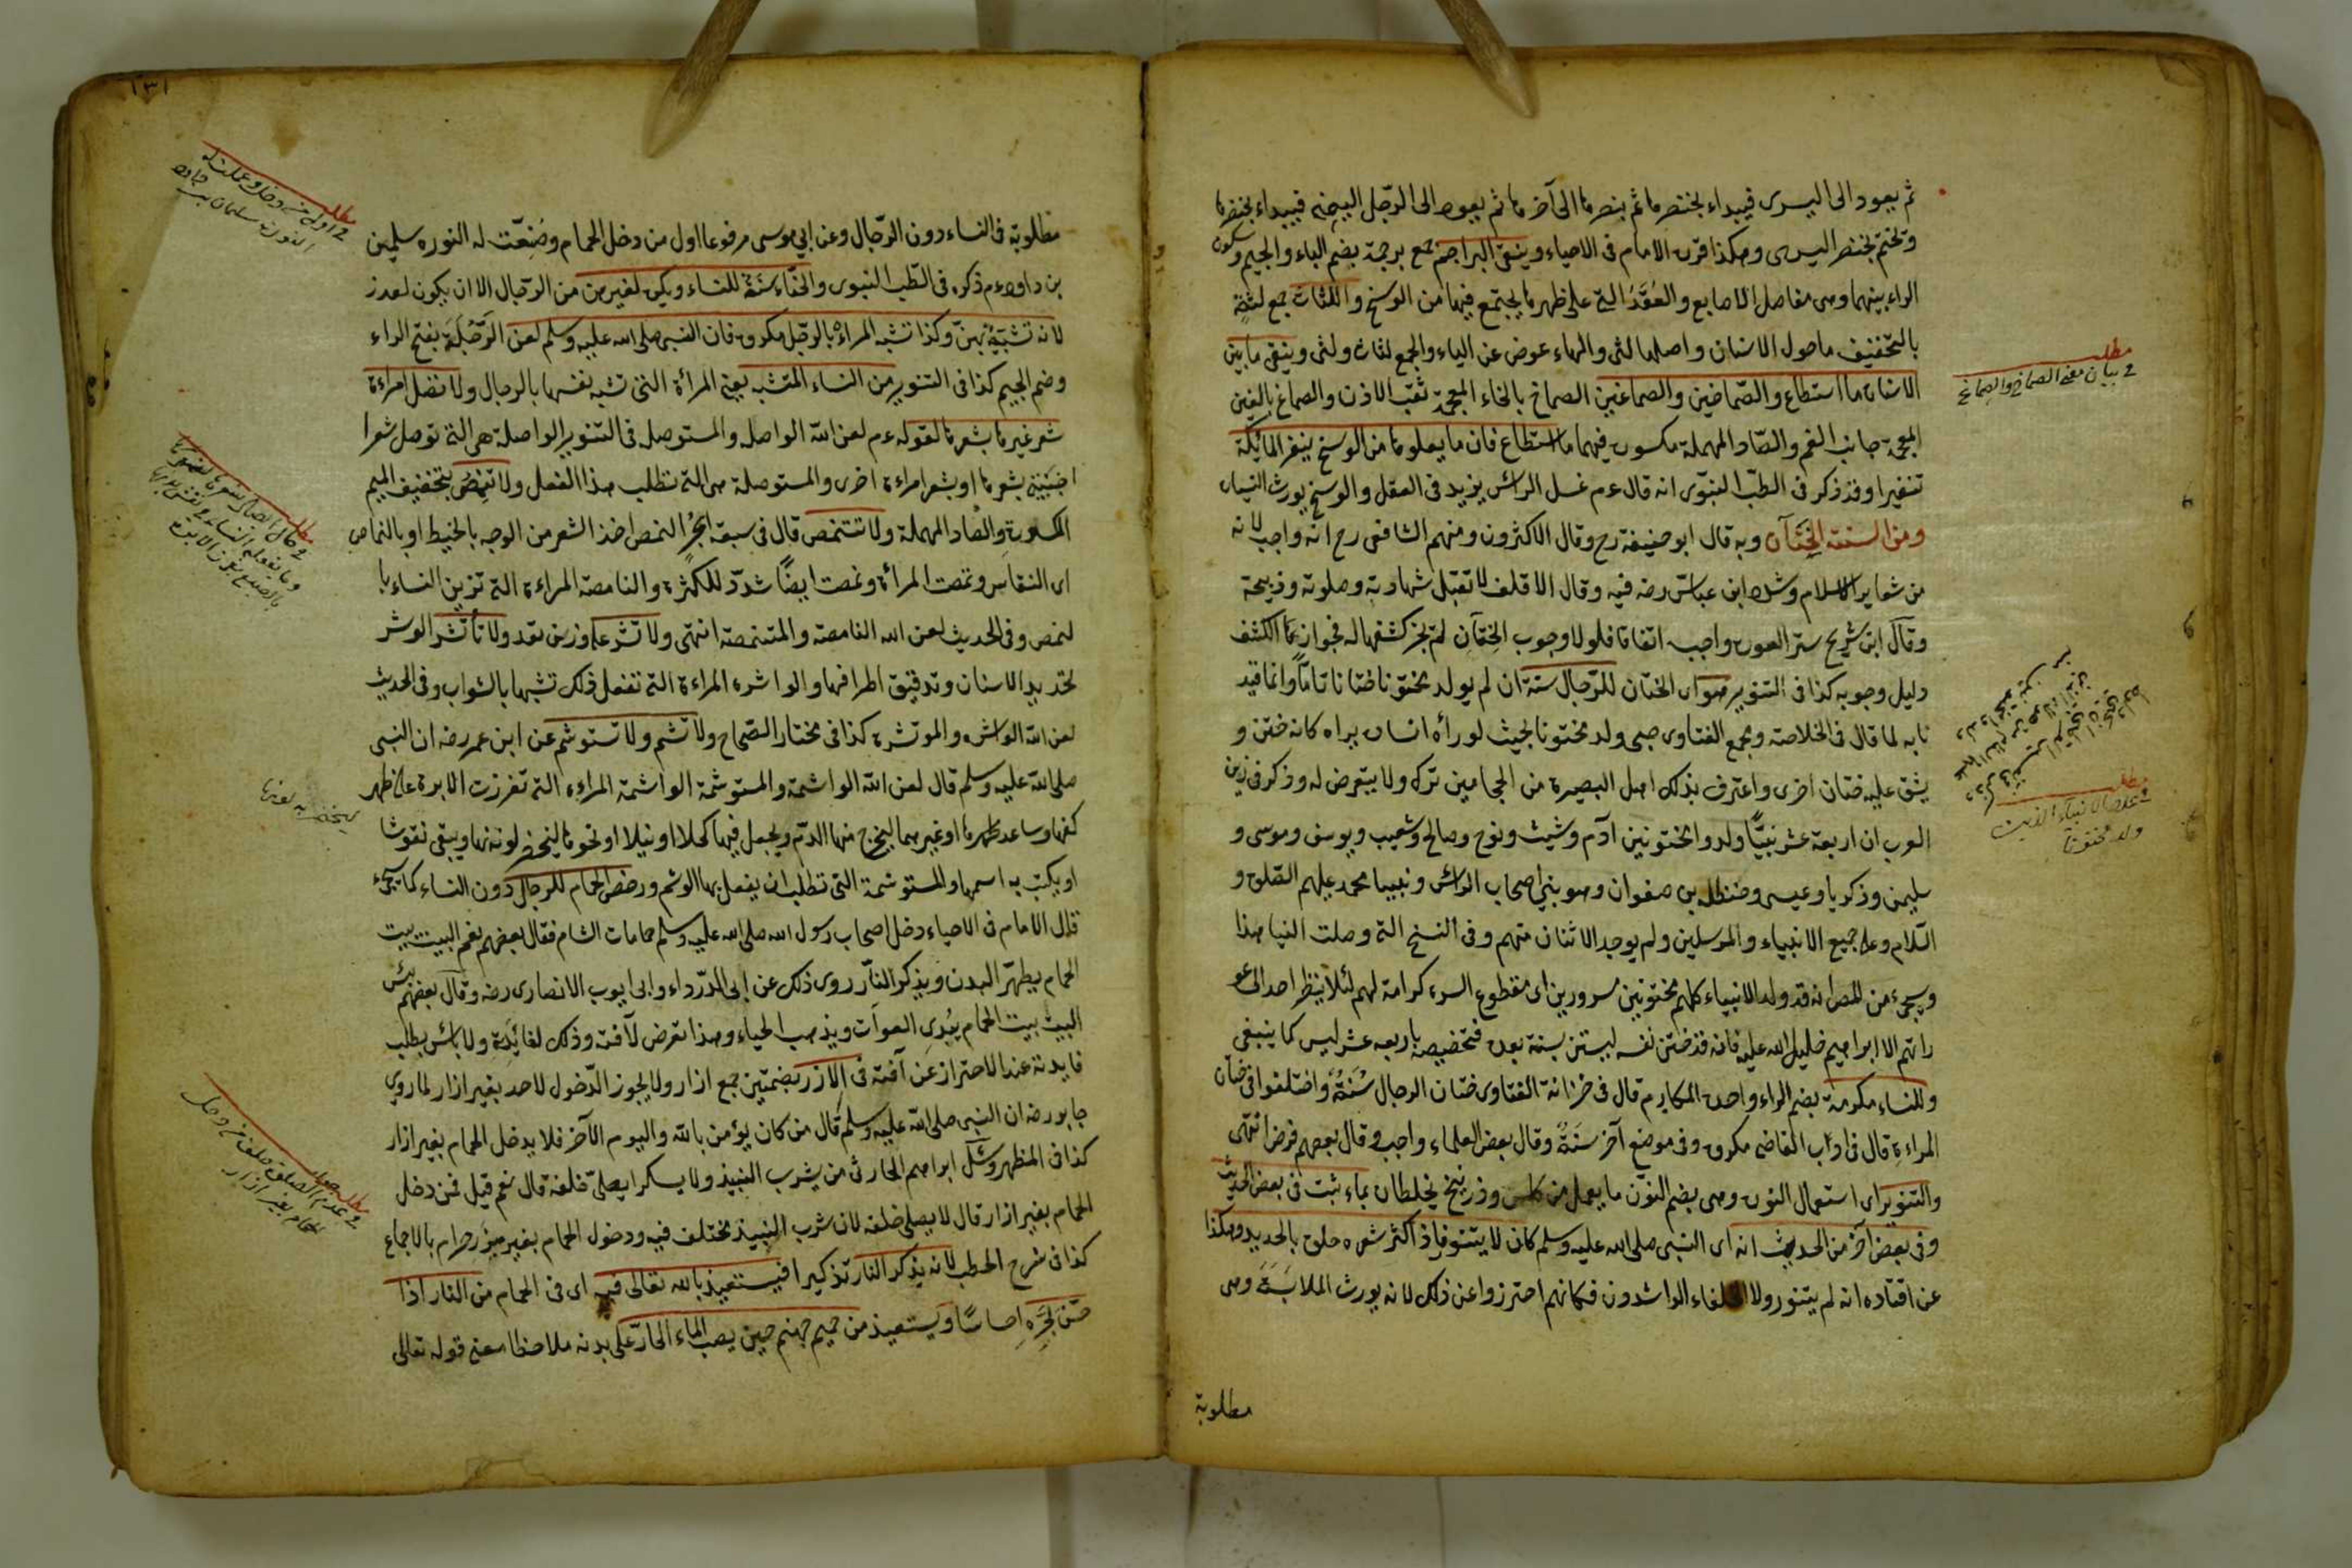 ثم يعود الى اليسرى فيبداء بخنصرها ثم بنصرها الى آخرها ثم يعود الى الرّجل اليمنى فيبداء بخنصرها
وتختم بخنصر اليسرى وهكذا قرره الامام فى الاحياء وينقى البراجم جمع برجمة بضم الباء والجيم وسكون
الراء بينهما وهى مفاصل الاصابع والعُقَدُ التى على ظهرها يجتمع فيها من الوسخ واللثات جمع لثةٍ
بالتخفيف ما حول الاسنان واصلها لثى والهاء عوض عن الياء والجمع لثات ولثى وينقى ما بين
الاسنان ما استطاع والصّماخين والصماغين الصماخ بالخاء المعجمة ثقب الاذن والصماغ بالغين
المعجمة جانب الفم والصّاد المهملة مكسورة فيهما ما استطاع فان ما يعلوها من الوسخ ينفر الملئكة
تنفيرا وقد ذكر فى الطبّ النبوّى انه قال عم غسل الرائس يزيد فى العقل والوسخ يورث النسيان
ومن السنة الخِتَان وبه قال ابو حنيفة رح وقال الاكثرون ومنهم الشافعى رح انه واجب لانه
من شعاير الاسلام وشدد ابن عباسّ رضه فيه وقال الاقلف لا تقبل شهادته وصلوته وذبيحته
وقال ابن شريح ستر العورة واجب اتفاقا فلولا وجوب الختان لم يجز كشفها له فجواز الكشف
دليل وجوبه كذا فى التنوير هو اى الختان للرّجال سنة ان لم يولد مختونا ختانا تامًّا وانما قيد
نا به لما قال فى الخلاصة ومجمع الفتاوى صبى ولد مختونا بحيث لو رأه انسان يراه كانه ختن و
يشق عليه ختان اخرى واعترف بذلك اهل البصيرة من الحجامين ترك ولا يتعرض له وذكر فى زين
العرب ان اربعة عشر نبيًّا ولدوا مختونين آدم وشيث ونوح وصالح وشعيب ويوسف وموسى و
سليمن وذكريا وعيسى وحنظلة بن صفوان وهو بنى اصحاب الرائس ونبينا محمد عليهم الصّلوة و
السّلام وعلى جميع الانبياء والمرسلين ولم يوجد الاثنان منهم وفى النسخ التى وصلت الينا هذا
ويجىء من المص انه قد ولد الانبياء كلهم مختونين مسرورين اى مقطوع السرة كرامة لهم لئلا ينظر احد الى عو
راتهم الا ابراهيم خليل الله عليه فانه قد ختن نفسه ليستن بسنة بعده فتخصيصه باربعه عشر ليس كما ينبغى
وللنساء مكرمة بضم الراء واحدة المكارم قال فى خزانة الفتاوى ختان الرجال سُنَةٌ واختلفوا فى ختان
المراءة قال فى اداب القاضى مكروه وفى موضع آخر سَنَةً وقال بعض العلماء واجب وقال بعضهم فرض انتهى
والتنوير اى استعمال النورة وهى بضم النوّن ما يعمل من كلس وذرنيخ يخلطان بماء ثبت فى بعض الحديث
وفى بعض آخر من الحديث انه اى النبى صلى الله عليه وسلم كان لا يتنور فاذا اكثر شعره حلق بالحديد وهكذا
عن اقتاده انه لم يتنور ولا الخلفاء الراشدون فكانهم احترزوا عن ذلك لانه يورث الملابَسَةَ وهى
مطلوبة
مطلب
فى بيان معنى الصماخ والصماغ
مطلب
فى عدد الانبياء الذين
ولد مختونا
١٣١
مطلوبة فى النساء دون الرّجال وعن ابي موسى مرفوعا اول من دخل الحمام وصُنِعَت له النوره سليمن
بن داود عم ذكره فى الطّب النبوى والحنّاء سنَةٌ للنساء ويكره لغيرهن من الرّجال الا ان يكون لعذر
لانه تشبّهٌ بهنّ وكذا تشبه المراةُ بالرجل مكروه فان النبى صلى الله عليه وسلم لعن الرَّجُلَة بفتح الراء
وضم الجيم كذا فى التنوير من النساء المتشبه يعنى المرأة التى تشبه نفسها بالرجال ولا تصل امراءة
شعر غيرها بشعرها لقوله عم لعن الله الواصله والمستوصله فى التنوير الواصلة هى التى توصل شعرا
اجنبية بشعرها او بشعر امراءة اخرى والمستوصلة هى التى تطلب هذا الفعل ولا تنمص بتخفيف الميم
المكسورة والصاد المهملة ولا تتنمص قال فى سبعة ابحُرٍ النمص اخذ الشعر من الوجه بالخيط او بالنماص
اى النقاس ونمصت المرأة ونمصت ايضًا شدّد للكثرة والنامصة المراءة التى تزين النساء با
لنمص وفى الحديث لعن الله النامصة والمتنمصة انتهى ولا تشر على وزن تعد ولا تأتشر الوشر
تحديد الاسنان وتدقيق اطرافها والواشره المراءة التى تفعل ذلك تشبها بالشواب وفى الحديث
لعن الله الواشره والموتشره كذا فى مختار الصّحاح ولا تشم ولا تستوشم عن ابن عمر رضه ان النبى
صلى الله عليه وسلم قال لعن الله الواشمة والمستوشمة الواشمة المراءه التى تغرزت الابرة على ظهر
كفها وساعد ظهرها او غيرهما ليخرج منها الدّم ويجعل فيها كحلا او نيلا او نحوها ليخضر لونها ويبقى نقوشا
او يكتب به اسمها والمستوشمة التى تطلب ان يفعل بها الوشم ورخص الحمام للرجال دون النساء كما يجىء
قال الامام فى الاحياء دخل اصحاب رسول الله صلى الله عليه وسلم حمامات الشام فقال بعضهم نعم البيت بيت
الحمام يطهّر البدن ويذكر النّار روى ذلك عن ابى الدّرداء وابى ايوب الانصارى رضه وقال بعضهم بئس
البيت بيت الحمام يُبْدِى العورات ويذهب الحياء وهذا تعرض لآفته وذلك لفائدة ولا بائس بطلب
فايدته عند الاحتراز عن آفته فى الازر بضمتين جمع ازار ولا يجوز الدّخول لاحد بغير ازار لما روى
جابر رضه ان النبى صلى الله عليه وسلم قال من كان يؤمن بالله واليوم الآخر فلا يدخل الحمام بغير ازار
كذا فى المظهر وسئل ابراهيم الحارثى من يشرب النبيذ ولا يسكر ايصلّى خلفه قال نعم قيل فمن دخل
الحمام بغير ازار قال لا يصلى خلفه لان شرب النبيذ مختلف فيه ودخول الحمام بغير ميزر حرام بالاجماع
كذا فى شرح الخطب لانه يذكر النار تذكيرا فيستعيذ بالله تعالى فيه اى فى الحمام من النار اذا
حسّ بحَرّهِ احساسًا ويستعيذ من حميم جهنم حين يصب الماء الحارّ على بدنه ملاحظا معنى قوله تعالى
مطلب
فى اول من دخل وعملت له
النورة سليمان بن داود
يخضر به لونها
مطلب
فى عدم الصلوة خلف من دخل
الحمام بغير ازار